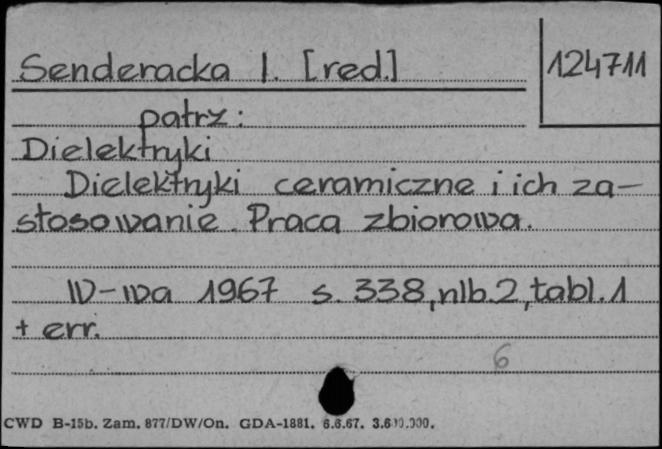 Senderacka I. [red.]
124711
patrz:
Dielektryki
Dielektryki ceramiczne i ich za-
stosowanie. Praca zbiorowa.
W-wa 1967 s. 338, nlb. 2, tabl. 1
+ err.
6
CWD B-15b. Zam. 877/DW/On. GDA-1881. 6.6.67. 3.600.000.